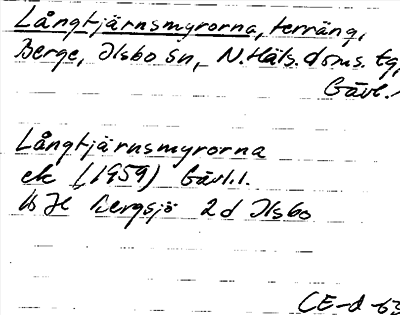 Långtjärnsmyrorna, terräng,
Berge, Ilsbo sn, N. Häls. doms. tg,
Gävl.
Långtjärnsmyrorna
ek (1959) Gävl.l.
16 H Bergsjö 2 d Ilsbo
CE-d-63